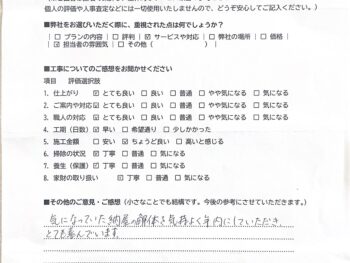 個人の評価や人事査定などには一切使用いたしませんので、どうぞ安心してご記入ください。)
■弊社をお選びいただく際に、重視された点は何でしょうか?
| □ プランの内容 | □ 評判 | ☑ サービスや対応 | □ 弊社の場所 | □ 価格 |
| ☑ 担当者の雰囲気 | □ その他 ( )
■工事についてのご感想をお聞かせください
項目 評価選択肢
1. 仕上がり ☑ とても良い □ 良い □ 普通 □ やや気になる □ 気になる
2. ご案内や対応 ☑ とても良い □ 良い □ 普通 □ やや気になる □ 気になる
3. 職人の対応 ☑ とても良い □ 良い □ 普通 □ やや気になる □ 気になる
4. 工期(日数) ☑ 早い □ 希望通り □ 少しかかった
5. 施工金額 □ 安い ☑ ちょうど良い □ 高いと感じる
6. 掃除の状況 ☑ 丁寧 □ 普通 □ 気になる
7. 養生(保護) ☑ 丁寧 □ 普通 □ 気になる
8. 家財の取り扱い ☑ 丁寧 □ 普通 □ 気になる
■その他のご意見・ご感想(小さなことでも結構です。今後の参考にさせていただきます。)
気になっていた納屋の解体を気持よく年内にしていただき
とても喜んでいます。